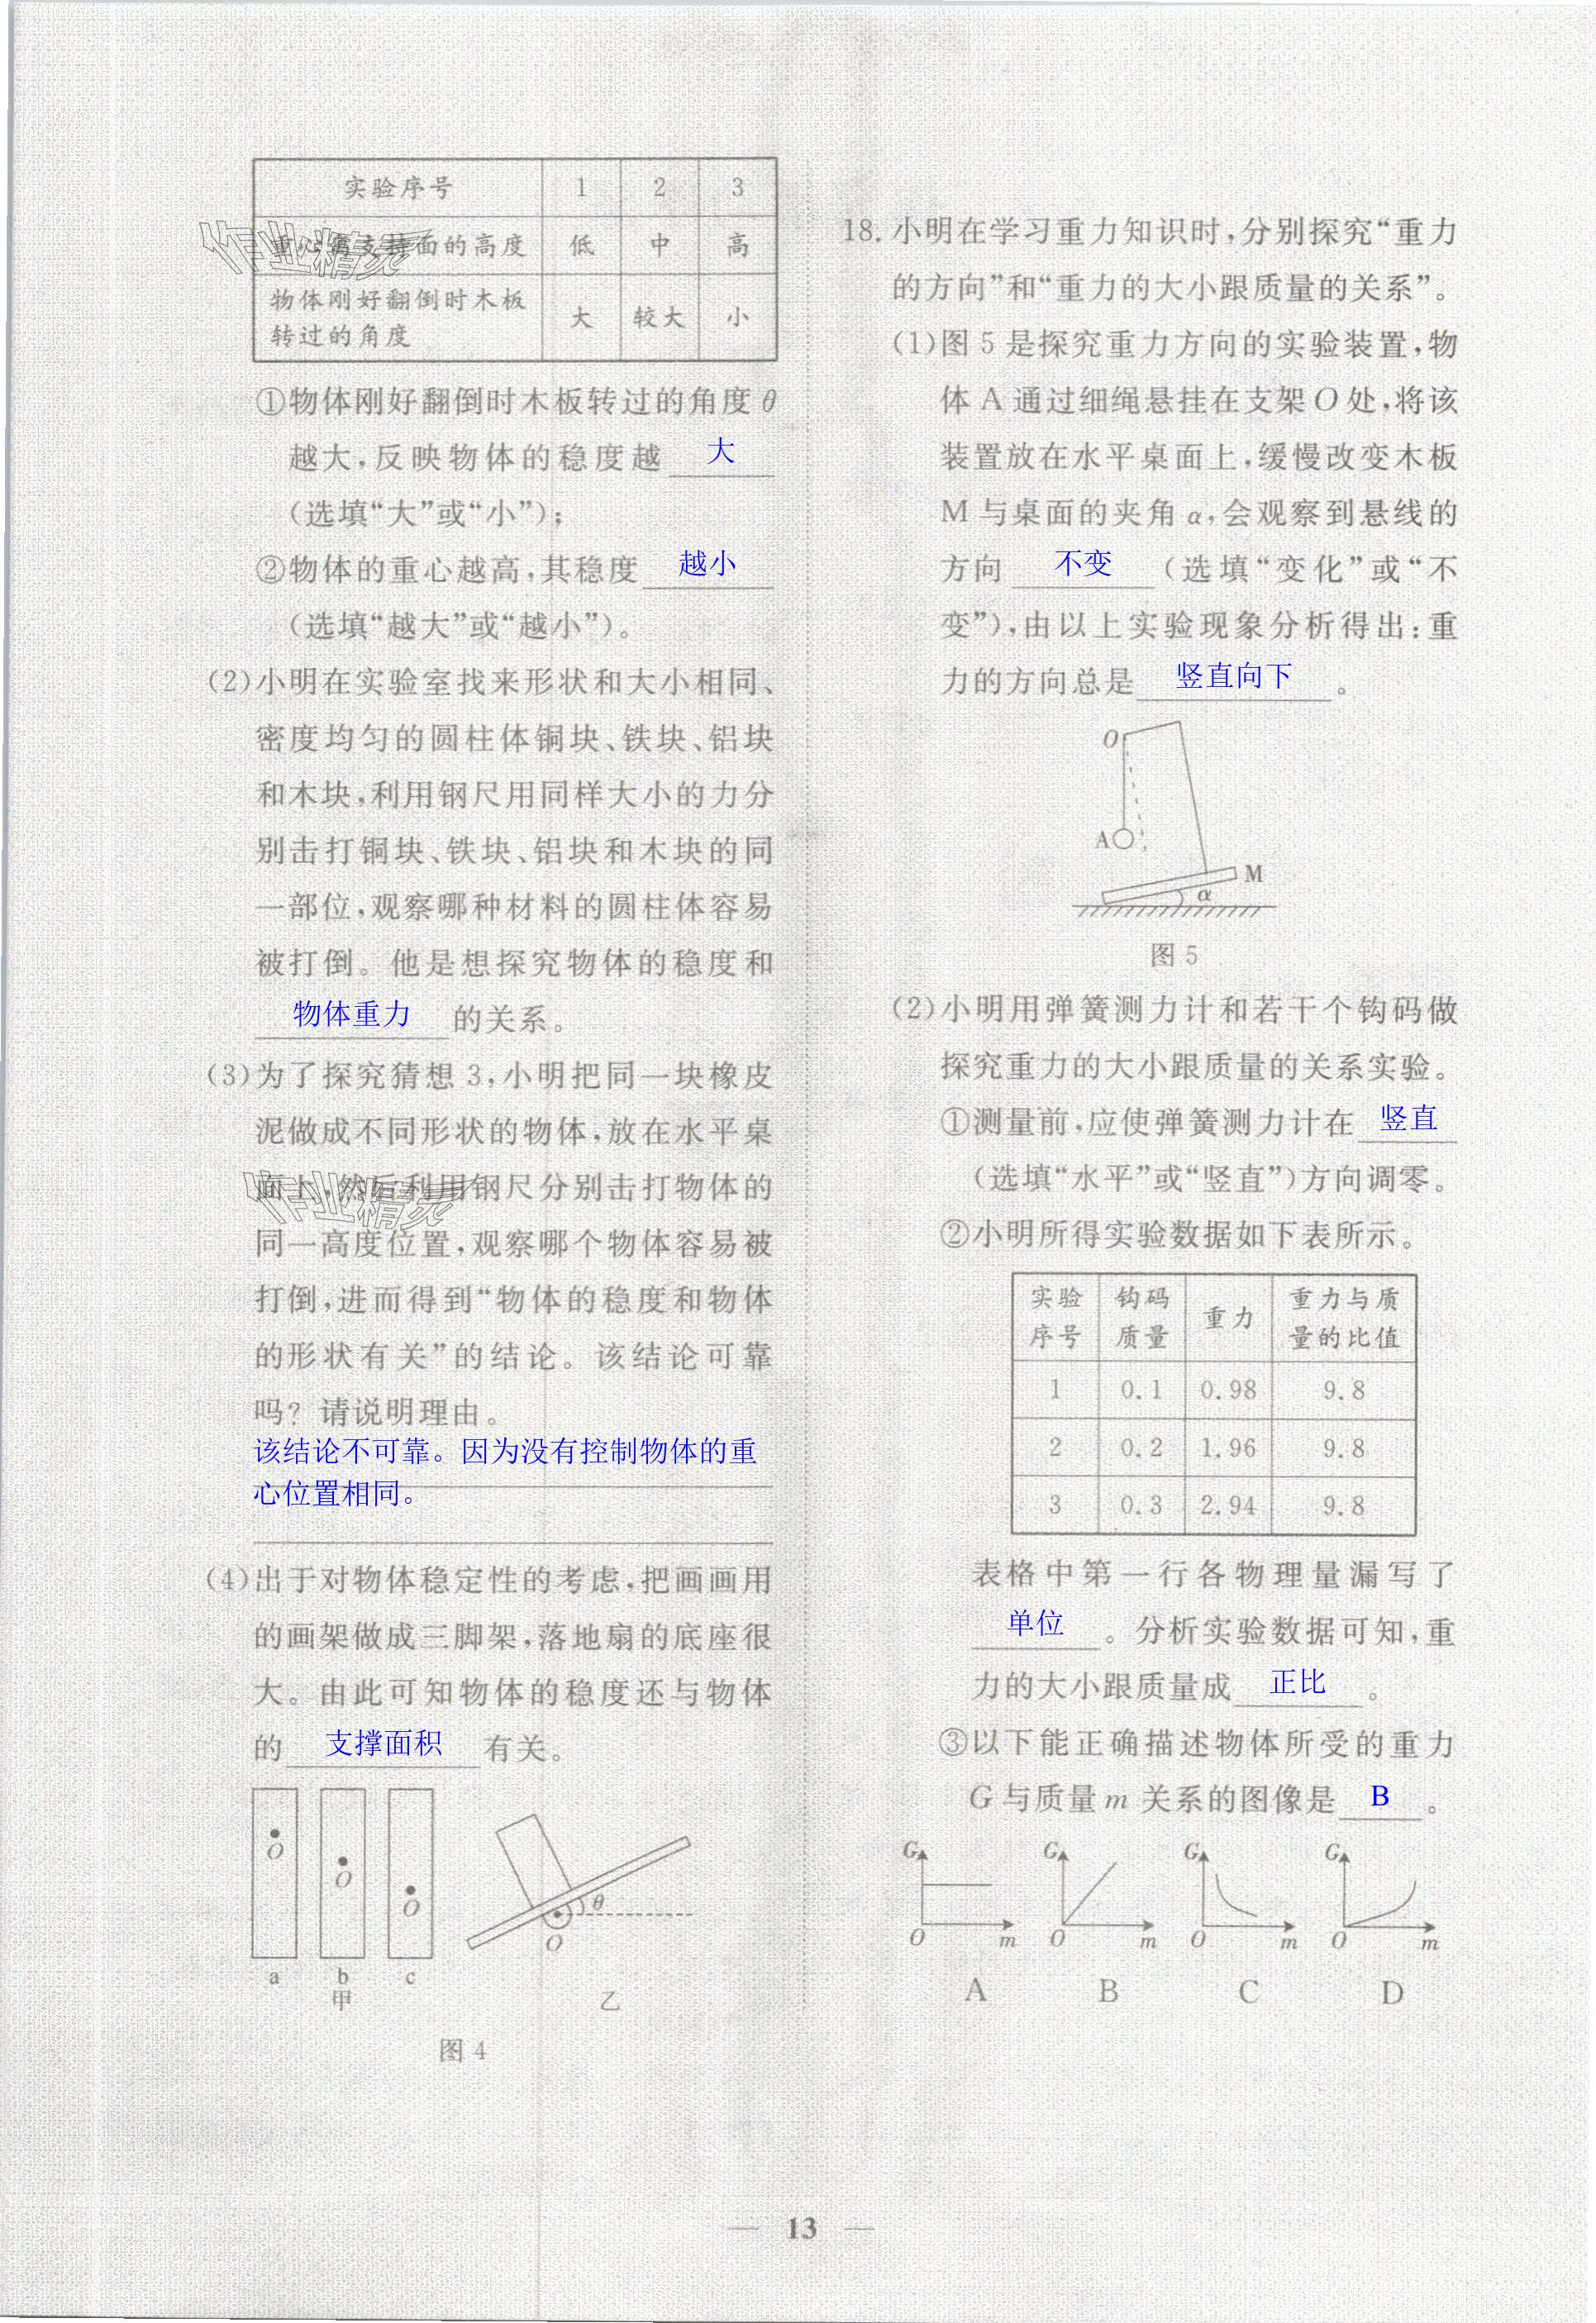 实验序号 1 2 3
重心离支持面的高度 低 中 高
物体刚好翻倒时木板转过的角度 大 较大 小
①物体刚好翻倒时木板转过的角度 θ
越大,反映物体的稳度越 大
(选填“大”或“小”);
②物体的重心越高,其稳度 越小
(选填“越大”或“越小”)。
(2)小明在实验室找来形状和大小相同、
密度均匀的圆柱体铜块、铁块、铝块
和木块,利用钢尺用同样大小的力分
别击打铜块、铁块、铝块和木块的同
一部位,观察哪种材料的圆柱体容易
被打倒。他是想探究物体的稳度和
物体重力 的关系。
(3)为了探究猜想 3,小明把同一块橡皮
泥做成不同形状的物体,放在水平桌
面上,然后利用钢尺分别击打物体的
同一高度位置,观察哪个物体容易被
打倒,进而得到“物体的稳度和物体
的形状有关”的结论。该结论可靠
吗?请说明理由。
该结论不可靠。因为没有控制物体的重
心位置相同。
(4)出于对物体稳定性的考虑,把画画用
的画架做成三脚架,落地扇的底座很
大。由此可知物体的稳度还与物体
的 支撑面积 有关。
O O O θ O
a b c
甲 乙
图 4
作业精灵
作业精灵
18. 小明在学习重力知识时,分别探究“重力
的方向”和“重力的大小跟质量的关系”。
(1)图 5 是探究重力方向的实验装置,物
体 A 通过细绳悬挂在支架 O 处,将该
装置放在水平桌面上,缓慢改变木板
M 与桌面的夹角 α,会观察到悬线的
方向 不变 (选填“变化”或“不
变”),由以上实验现象分析得出:重
力的方向总是 竖直向下 。
O
A
M
α
图 5
(2)小明用弹簧测力计和若干个钩码做
探究重力的大小跟质量的关系实验。
①测量前,应使弹簧测力计在 竖直
(选填“水平”或“竖直”)方向调零。
②小明所得实验数据如下表所示。
实验序号 钩码质量 重力 重力与质量的比值
1 0.1 0.98 9.8
2 0.2 1.96 9.8
3 0.3 2.94 9.8
表格中第一行各物理量漏写了
单位 。分析实验数据可知,重
力的大小跟质量成 正比 。
③以下能正确描述物体所受的重力
G 与质量 m 关系的图像是 B 。
G G G G
O m O m O m O m
A B C D
— 13 —